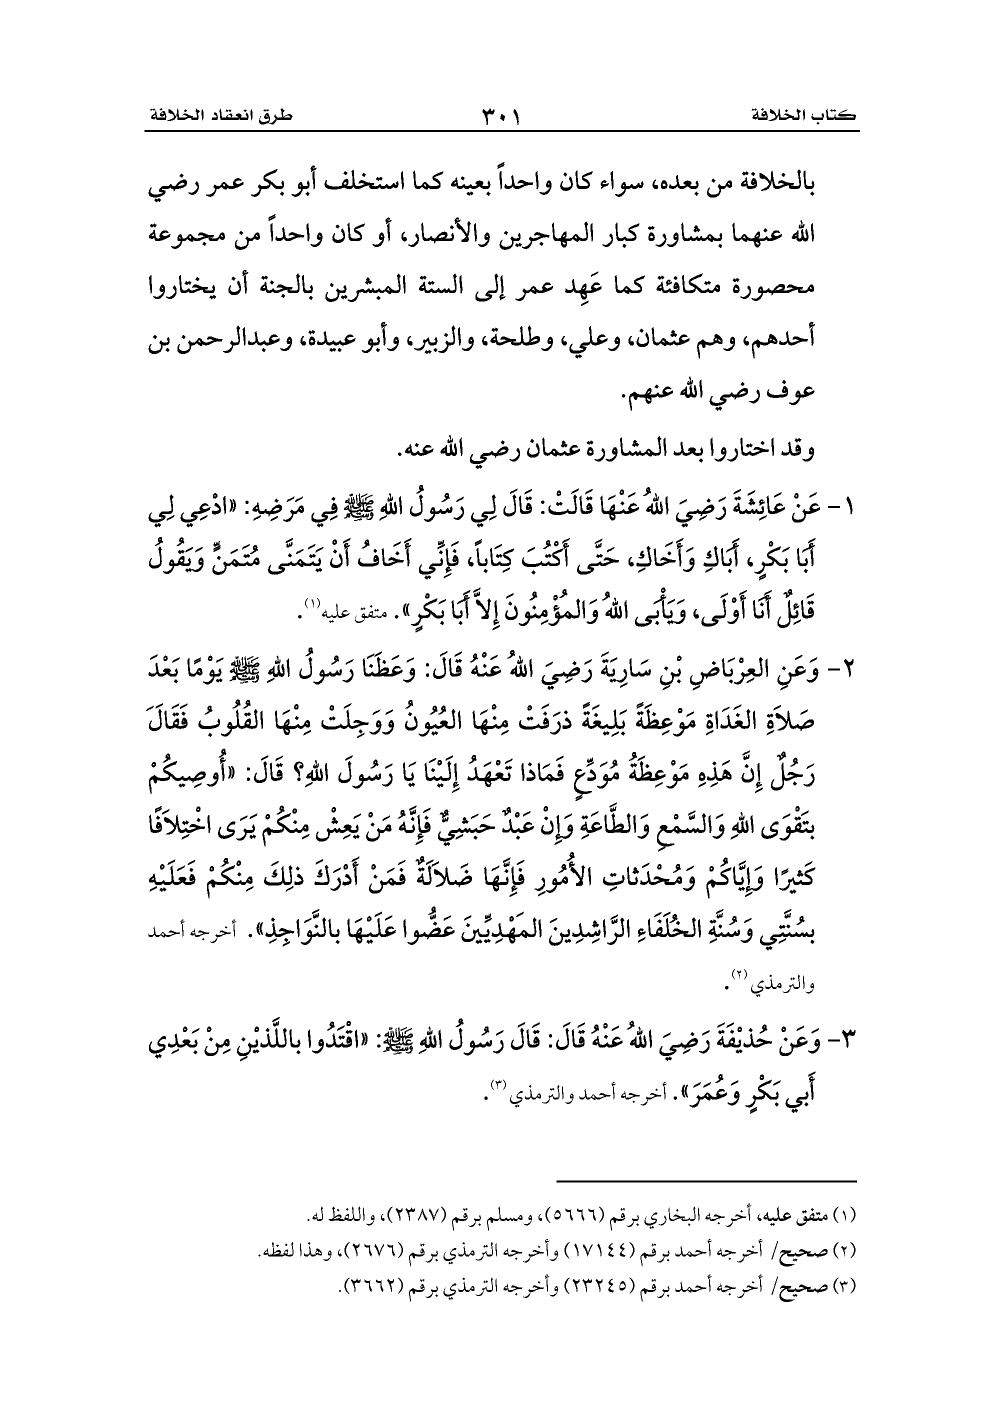 كتاب الخلافة ٣٠١ طرق انعقاد الخلافة
بالخلافة من بعده، سواء كان واحداً بعينه كما استخلف أبو بكر عمر رضي
الله عنهما بمشاورة كبار المهاجرين والأنصار، أو كان واحداً من مجموعة
محصورة متكافئة كما عَهِد عمر إلى الستة المبشرين بالجنة أن يختاروا
أحدهم، وهم عثمان، وعلي، وطلحة، والزبير، وأبو عبيدة، وعبدالرحمن بن
عوف رضي الله عنهم.
وقد اختاروا بعد المشاورة عثمان رضي الله عنه.
١- عَنْ عَائِشَةَ رَضِيَ اللهُ عَنْهَا قَالَتْ: قَالَ لِي رَسُولُ اللهِ ﷺ فِي مَرَضِهِ: «ادْعِي لِي
أَبَا بَكْرٍ، أَبَاكِ وَأَخَاكِ، حَتَّى أَكْتُبَ كِتَاباً، فَإِنِّي أَخَافُ أَنْ يَتَمَنَّى مُتَمَنٍّ وَيَقُولُ
قَائِلٌ أَنَا أَوْلَى، وَيَأْبَى اللهُ وَالمُؤْمِنُونَ إِلاَّ أَبَا بَكْرٍ». متفق عليه(١).
٢- وَعَنِ العِرْبَاضِ بْنِ سَارِيَةَ رَضِيَ اللهُ عَنْهُ قَالَ: وَعَظَنَا رَسُولُ اللهِ ﷺ يَوْمًا بَعْدَ
صَلاَةِ الغَدَاةِ مَوْعِظَةً بَلِيغَةً ذرَفَتْ مِنْهَا العُيُونُ وَوَجِلَتْ مِنْهَا القُلُوبُ فَقَالَ
رَجُلٌ إِنَّ هَذِهِ مَوْعِظَةُ مُوَدِّعٍ فَمَاذا تَعْهَدُ إِلَيْنَا يَا رَسُولَ اللهِ؟ قَالَ: «أُوصِيكُمْ
بتَقْوَى اللهِ وَالسَّمْعِ وَالطَّاعَةِ وَإِنْ عَبْدٌ حَبَشِيٌّ فَإِنَّهُ مَنْ يَعِشْ مِنْكُمْ يَرَى اخْتِلاَفًا
كَثيرًا وَإِيَّاكُمْ وَمُحْدَثاتِ الأُمُورِ فَإِنَّهَا ضَلاَلَةٌ فَمَنْ أَدْرَكَ ذلِكَ مِنْكُمْ فَعَلَيْهِ
بسُنَّتِي وَسُنَّةِ الخُلَفَاءِ الرَّاشِدِينَ المَهْدِيِّينَ عَضُّوا عَلَيْهَا بالنَّوَاجِذِ». أخرجه أحمد
والترمذي(٢).
٣- وَعَنْ حُذيْفَةَ رَضِيَ اللهُ عَنْهُ قَالَ: قَالَ رَسُولُ اللهِ ﷺ: «اقْتَدُوا باللَّذيْنِ مِنْ بَعْدِي
أَبي بَكْرٍ وَعُمَرَ». أخرجه أحمد والترمذي(٣).
(١) متفق عليه، أخرجه البخاري برقم (٥٦٦٦)، ومسلم برقم (٢٣٨٧)، واللفظ له.
(٢) صحيح/ أخرجه أحمد برقم (١٧١٤٤) وأخرجه الترمذي برقم (٢٦٧٦)، وهذا لفظه.
(٣) صحيح/ أخرجه أحمد برقم (٢٣٢٤٥) وأخرجه الترمذي برقم (٣٦٦٢).